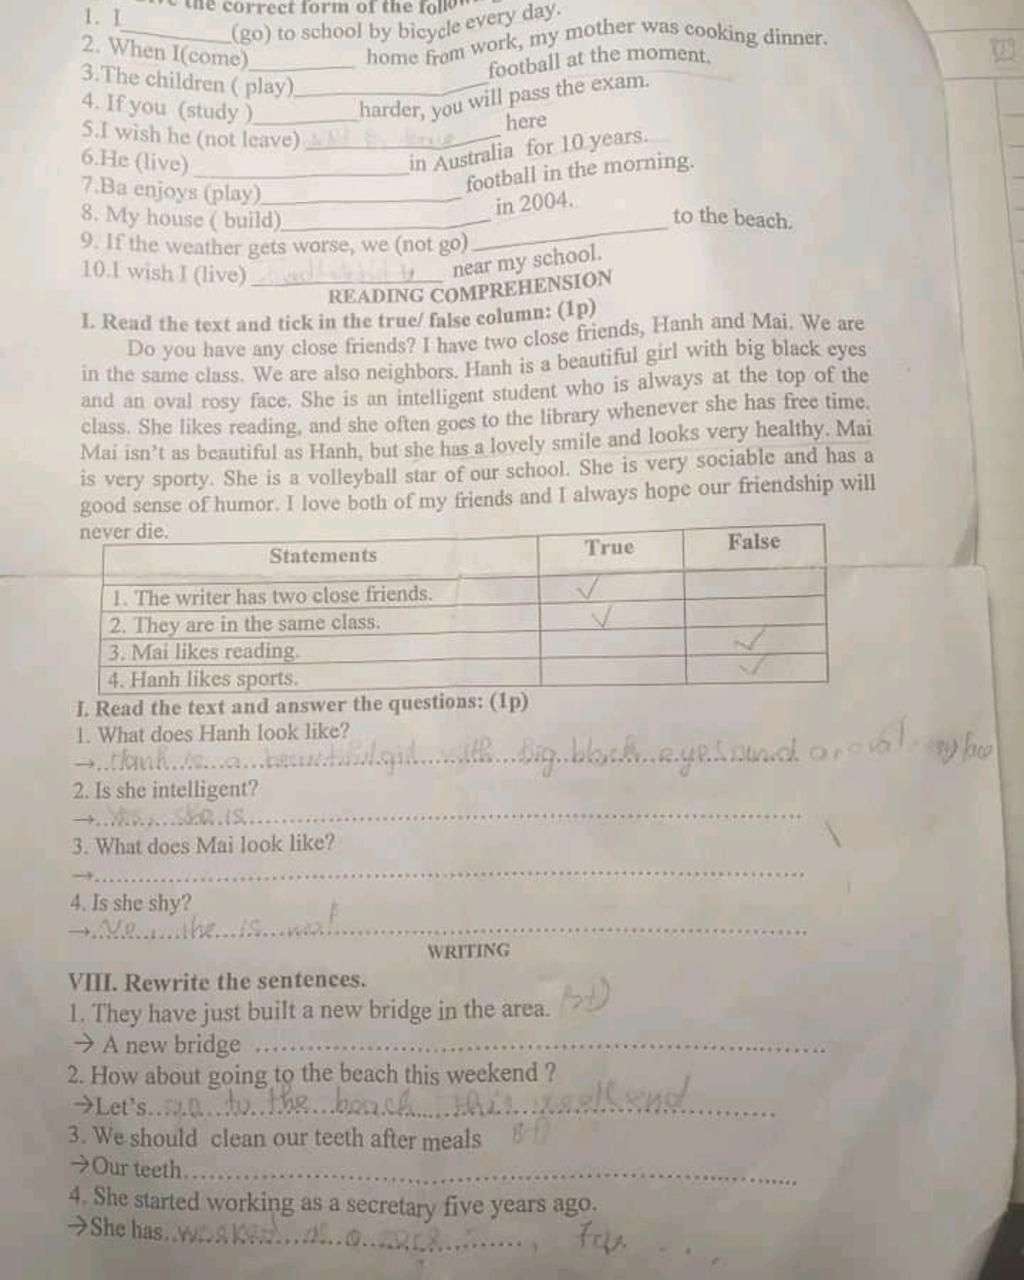 the correct form of the
1. I__________(go) to school by bicycle every day.
2. When I(come)__________ home from work, my mother was cooking dinner.
3.The children ( play)______________ football at the moment.
4. If you (study )__________ harder, you will pass the exam.
5.I wish he (not leave) ______________ here
6.He (live) ______________ in Australia for 10 years.
7.Ba enjoys (play)______________ football in the morning.
8. My house ( build)______________ in 2004.
9. If the weather gets worse, we (not go) ______________ to the beach.
10.I wish I (live) ______________ near my school.
READING COMPREHENSION
I. Read the text and tick in the true/ false column: (1p)
Do you have any close friends? I have two close friends, Hanh and Mai. We are
in the same class. We are also neighbors. Hanh is a beautiful girl with big black eyes
and an oval rosy face. She is an intelligent student who is always at the top of the
class. She likes reading, and she often goes to the library whenever she has free time.
Mai isn't as beautiful as Hanh, but she has a lovely smile and looks very healthy. Mai
is very sporty. She is a volleyball star of our school. She is very sociable and has a
good sense of humor. I love both of my friends and I always hope our friendship will
never die.
Statements True False
1. The writer has two close friends. ✓
2. They are in the same class. ✓
3. Mai likes reading. ✓
4. Hanh likes sports. ✓
I. Read the text and answer the questions: (1p)
1. What does Hanh look like?
→ Hanh is a beautiful girl with big black eyes and an oval face
2. Is she intelligent?
→ Yes, she is
3. What does Mai look like?
→
4. Is she shy?
→ No, she is not
WRITING
VIII. Rewrite the sentences.
1. They have just built a new bridge in the area.
→ A new bridge
2. How about going to the beach this weekend ?
→Let's go to the beach this weekend
3. We should clean our teeth after meals
→Our teeth
4. She started working as a secretary five years ago.
→She has worked as a for